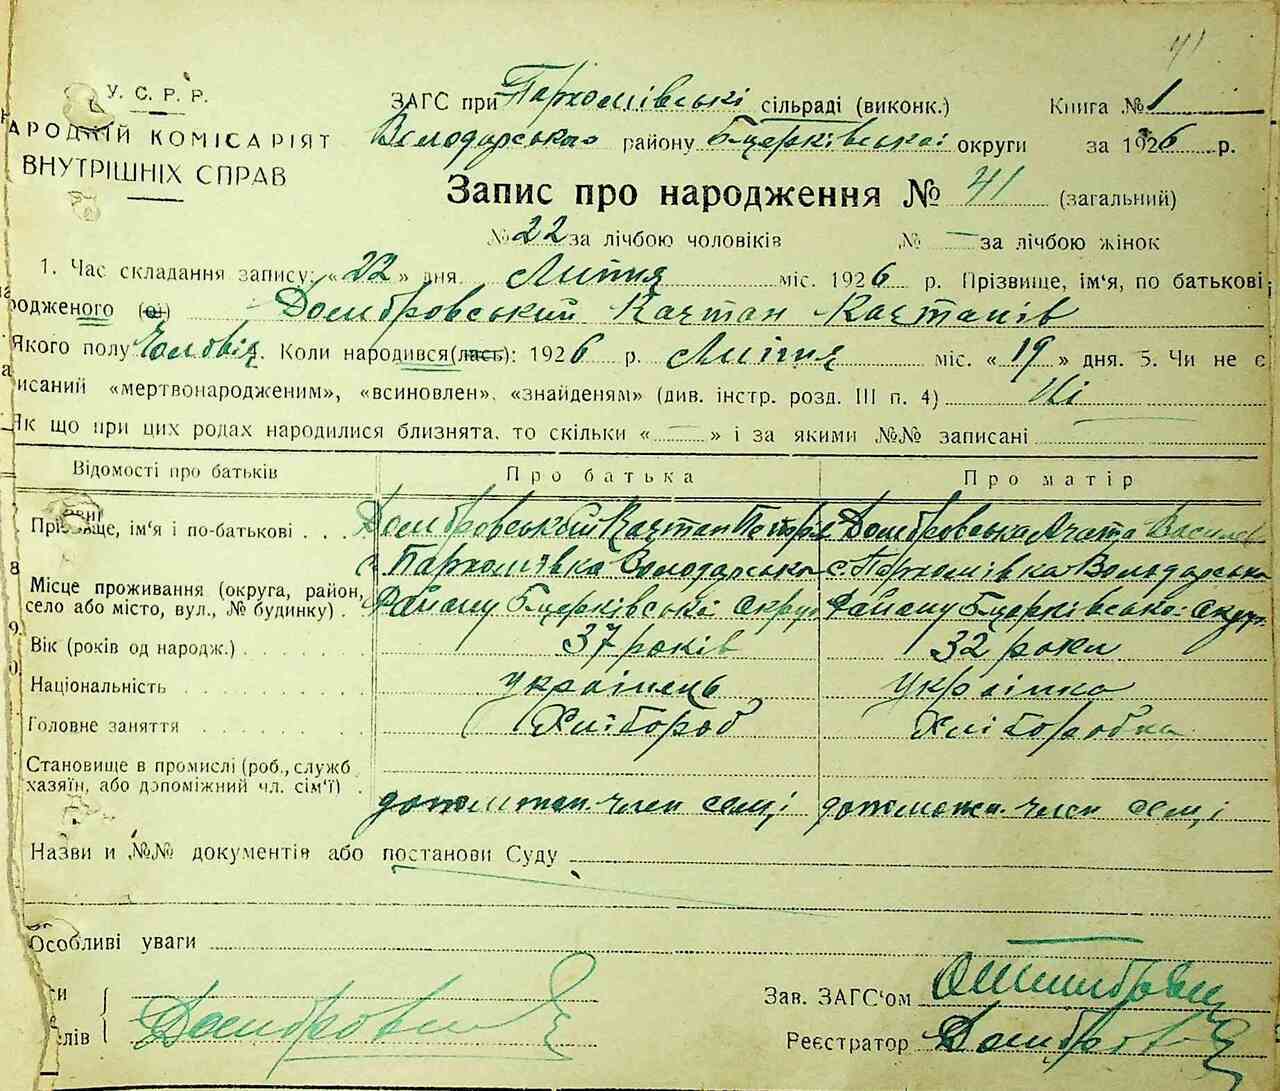 41
У. С. Р. Р.
НАРОДНІЙ КОМІСАРІЯТ
ВНУТРІШНІХ СПРАВ
ЗАГС при Пархомівські сільраді (виконк.) Книга № 1
Володарського району Б-церківської округи за 1926 р.
Запис про народження № 41 (загальний)
№ 22 за лічбою чоловіків № — за лічбою жінок
1. Час складання запису: « 22 » дня Липня міс. 1926 р. Прізвище, ім'я, по батькові
родженого (ої) Домбровський Каєтан Каєтанів
Якого полу Чоловіч. Коли народився(лась): 1926 р. Липня міс. « 19 » дня. 5. Чи не є
писаний «мертвонародженим», «всиновлен», «знайденям» (див. інстр. розд. III п. 4) Ні
Як що при цих родах народилися близнята, то скільки « — » і за якими №№ записані —
Відомості про батьків Про батька Про матір
Прізвище, ім'я і по-батькові Домбровський Каєтан Петрів Домбровська Агата Василів
8 Місце проживання (округа, район, село або місто, вул., № будинку) с. Пархомівка Володарсько с. Пархомівка Володарська
Району Б-церківські Округ Району Б-церківської Округ.
9. Вік (років од народж.) 37 років 32 роки
0. Національність українець українка
Головне заняття Хлібороб Хліборобка
Становище в промислі (роб., служб.
хазяїн, або допоміжний чл. сім'ї) член семі допоможн. член семі
Назви и №№ документів або постанови Суду
Особливі уваги
Домбровський
Зав. ЗАГС'ом
Реєстратор Домбровс